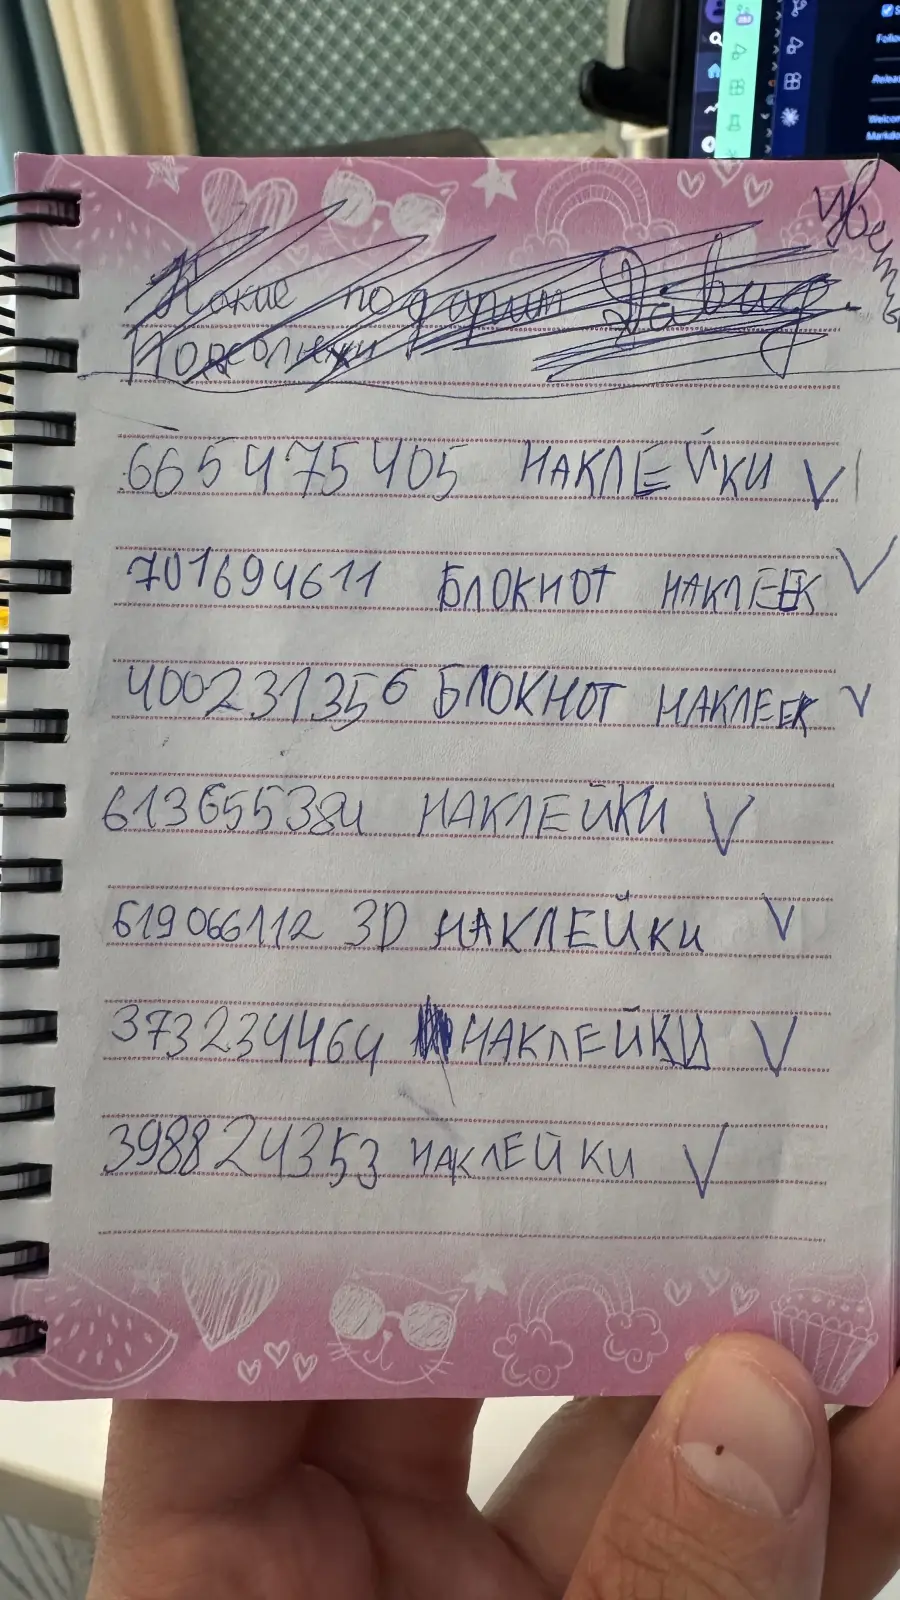 Какие подарим Давид.
Подсолнухи
665475405 НАКЛЕЙКИ V
701694611 БЛОКНОТ НАКЛЕЕК V
400231356 БЛОКНОТ НАКЛЕЕК V
613655384 НАКЛЕЙКИ V
619066112 3D НАКЛЕЙКИ V
373234464 НАКЛЕЙКИ V
398824353 НАКЛЕЙКИ V